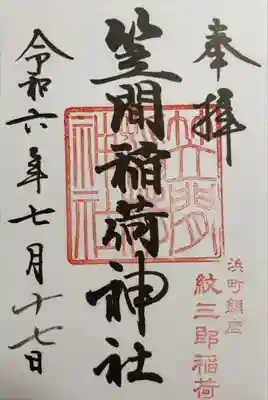 奉拝
笠間稲荷神社
笠間稲荷神社
浜町鎮座
紋三郎稲荷
令和六年七月十七日